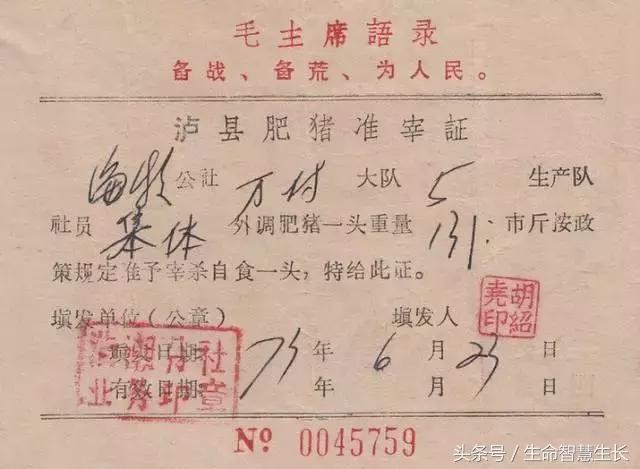 毛主席語录
备战、备荒、为人民。
泸县肥猪准宰証
海潮公社 万村 大队 5 生产队
社员 集体 外调肥猪一头重量 131 市斤按政
策规定准予宰杀自食一头，特给此证。
填发单位（公章） 填发人
胡紹尧印
填发日期 75年 6月 23日
有效日期 年 月 日
Nº 0045759
头条号／生命智慧生长